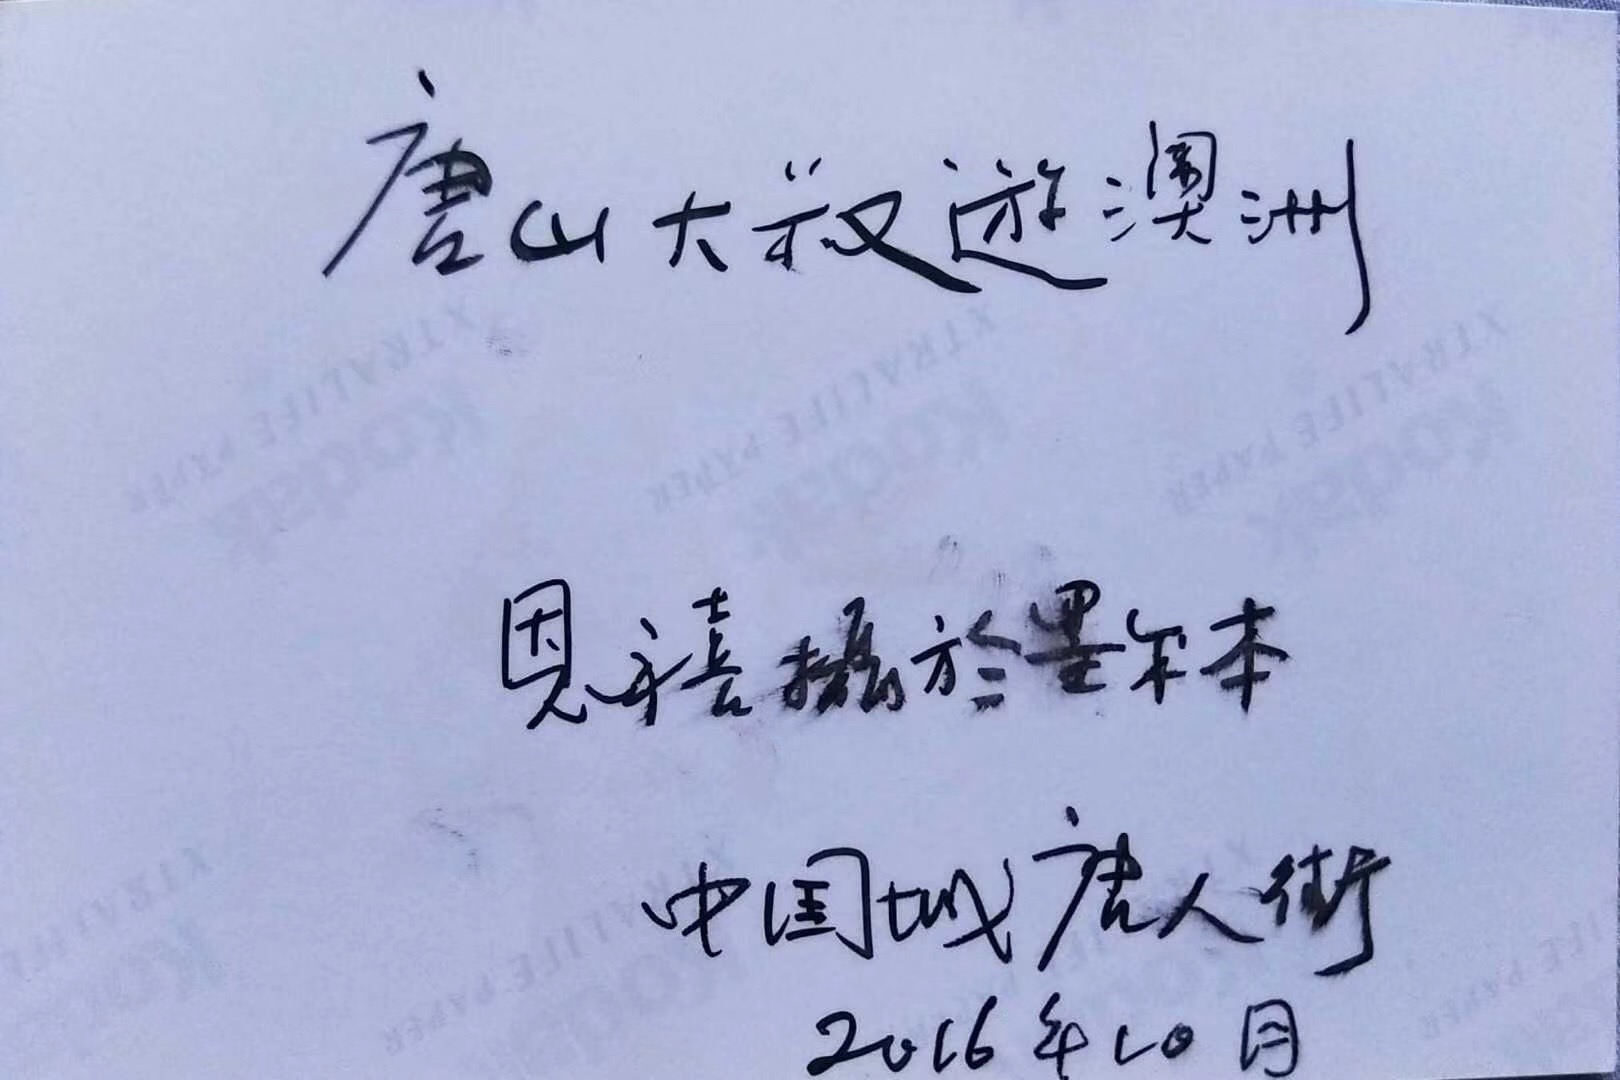 唐山大叔遊澳洲
XTRALIFE PAPER XTRALIFE PAPER XTRALIFE PAPER
Kodak Kodak Kodak
恩禧攝於墨尔本
中国城唐人街
2016年10月